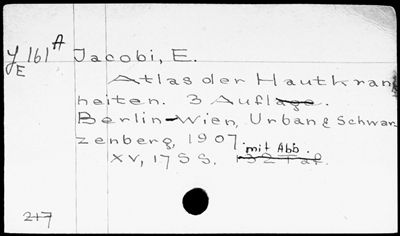 Y 161 A
E
Jacobi, E.
Atlas der Hautkran
heiten. 3 Auflage.
Berlin-Wien, Urban & Schwar
zenberg, 1907.
mit Abb.
XV, 17 SS. 132 Taf.
217